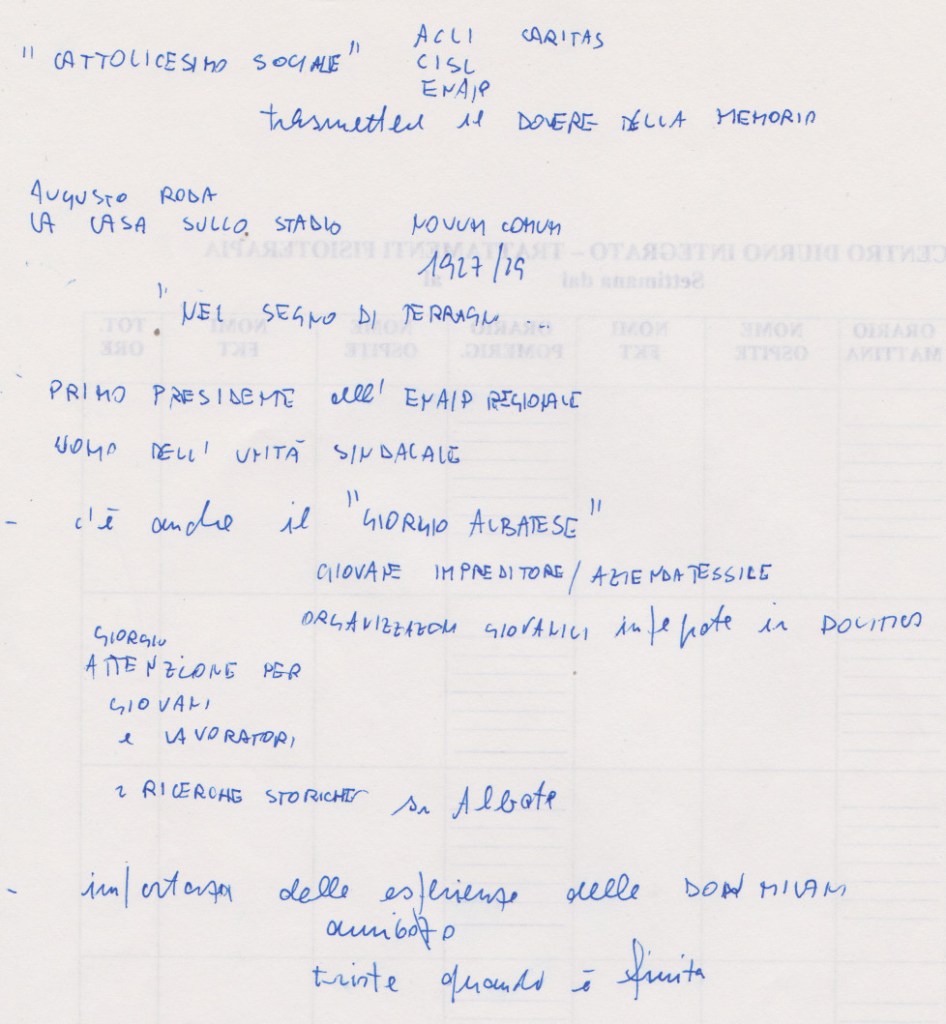 "CATTOLICESIMO SOCIALE" ACLI CARITAS
CISL
ENAIP
trasmettere il DOVERE DELLA MEMORIA
AUGUSTO RODA
LA CASA SULLO STADIO NOVUM COMUM
1927/29
"NEL SEGNO DI TERRAGNI ...
PRIMO PRESIDENTE dell' ENAIP REGIONALE
UOMO DELL' UNITÀ SINDACALE
- c'è anche il "GIORGIO ALBATESE"
GIOVANE IMPREDITORE / AZIENDA TESSILE
ORGANIZZAZIONI GIOVANILI impegnate in POLITICA
GIORGIO
ATTENZIONE PER
GIOVANI
e LAVORATORI
2 RICERCHE STORICHE su Albate
- importanza delle esperienze delle DON MILANI
anni 60/70
triste quando è finita
CENTRO DIURNO INTEGRATO – TRATTAMENTI FISIOTERAPIA
Settimana dal al
ORARIO MATTINA NOME OSPITE NOMI FKT ORARIO POMERIG. NOME OSPITE NOMI FKT TOT. ORE